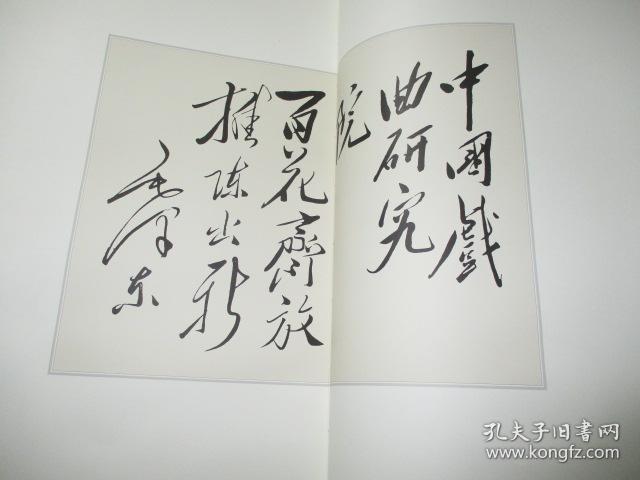 中國戲
曲研究
院
百花齊放
推陈出新
毛泽东
孔夫子旧书网
www.kongfz.com